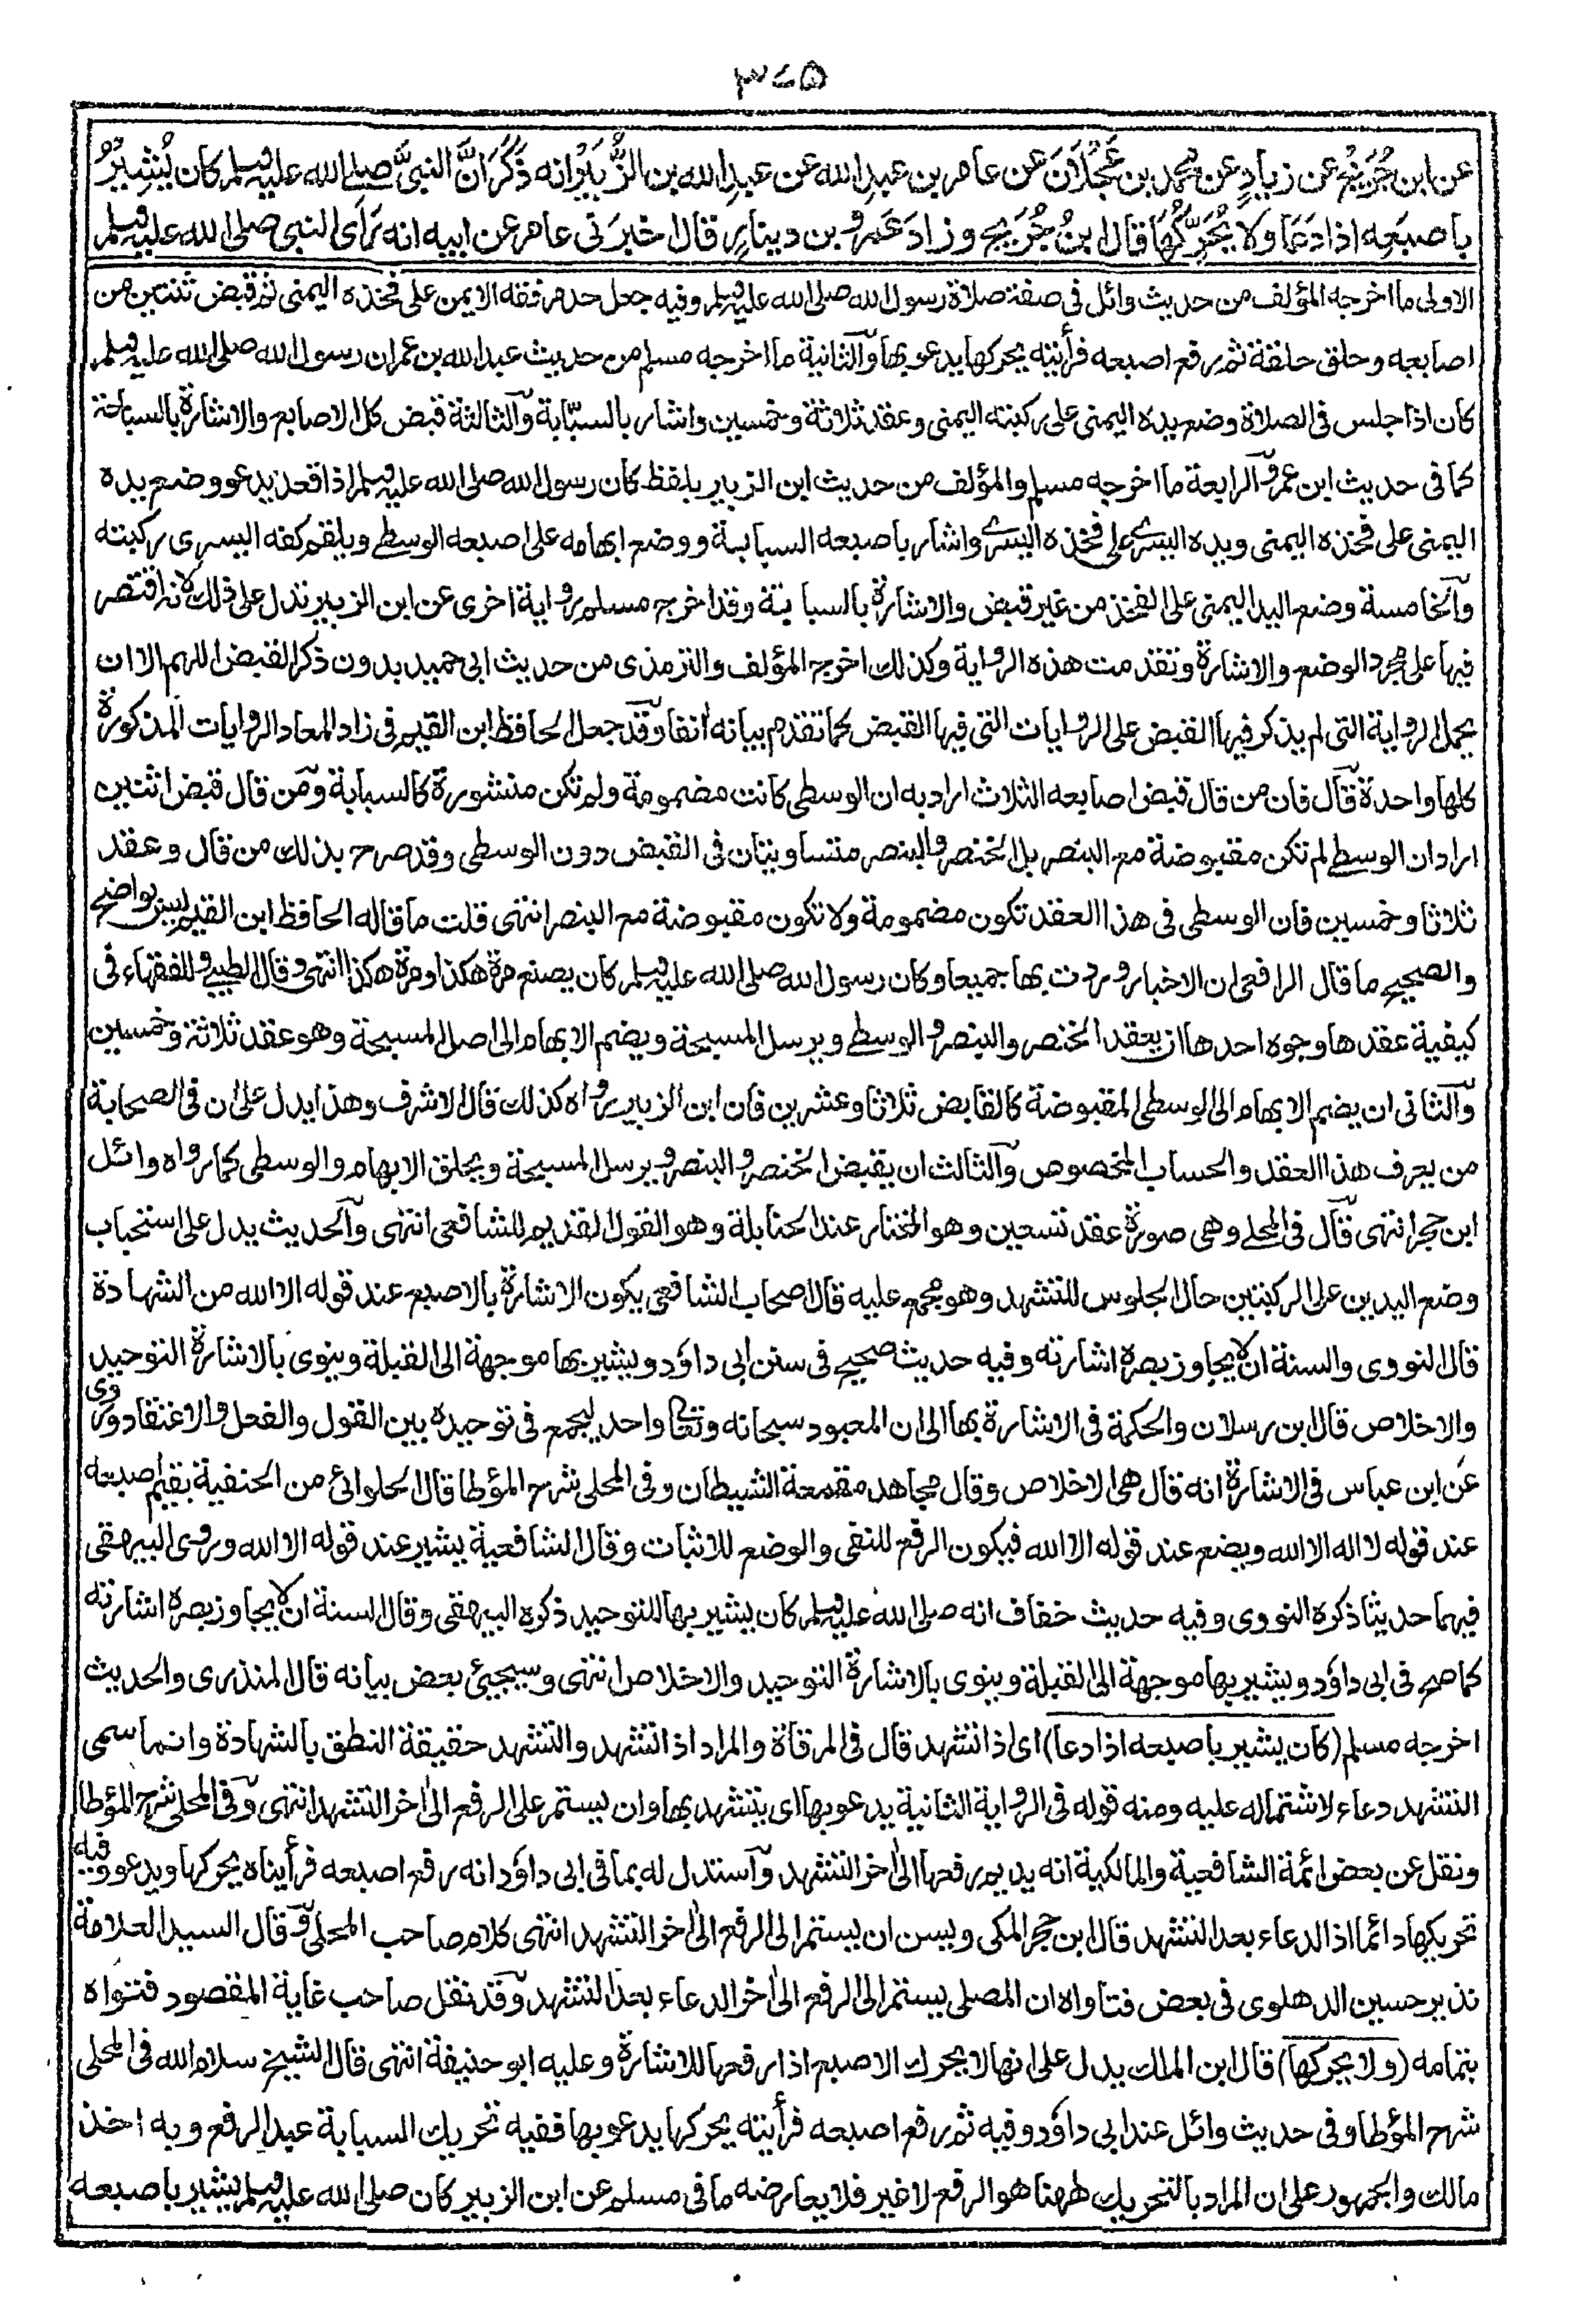 ٣٧٥
عن ابن جُرَيْجٍ عن زيادٍ عن محمد بن عَجْلَانَ عن عامر بن عبدِ الله عن عبدِ الله بن الزُّبَيْرِ انه ذَكَرَ اَنَّ النبيَّ صلى الله عليه وسلم كان يُشِيْرُ
باصبَعِه اذا دَعَا ولا يُحَرِّكُهَا قال ابنُ جُرَيجٍ وزاد عَمرو بن دينارٍ قال اخبرَنى عامر عن ابيه انه رَاَى النبى صلى الله عليه وسلم
الاولى ما اخرجه المؤلف من حديث وائل فى صفة صلاة رسول الله صلى الله عليه وسلم وفيه جعل حد مرفقه الايمن على فخذه اليمنى ثم قبض ثنتين من
اصابعه وحلق حلقة ثم رفع اصبعه فرأيته يحركها يدعو بها والثانية ما اخرجه مسلم من حديث عبد الله بن عمر ان رسول الله صلى الله عليه وسلم
كان اذا جلس فى الصلاة وضع يده اليمنى على ركبته اليمنى وعقد ثلاثة وخمسين واشار بالسبّابة والثالثة قبض كل الاصابع والاشارة بالسباحة
كما فى حديث ابن عمر والرابعة ما اخرجه مسلم والمؤلف من حديث ابن الزبير بلفظ كان رسول الله صلى الله عليه وسلم اذا قعد يدعو وضع يده
اليمنى على فخذه اليمنى ويده اليسرى على فخذه اليسرى واشار باصبعه السبابة ووضع ابهامه على اصبعه الوسطى ويلقم كفه اليسرى ركبته
والخامسة وضع اليد اليمنى على الفخذ من غير قبض والاشارة بالسبابة وقد اخرج مسلم رواية اخرى عن ابن الزبير تدل على ذلك لانه اقتصر
فيها على مجرد الوضع والاشارة وتقدمت هذه الرواية وكذلك اخرج المؤلف والترمذى من حديث ابى حميد بدون ذكر القبض اللهم الا ان
يحمل الرواية التى لم يذكر فيها القبض على الروايات التى فيها القبض كما تقدم بيانه انفا وقد جعل الحافظ ابن القيم فى زاد المعاد الروايات المذكورة
كلها واحدة قال فان من قال قبض اصابعه الثلاث اراد به ان الوسطى كانت مضمومة ولم تكن منشورة كالسبابة ومن قال قبض اثنتين
اراد ان الوسطى لم تكن مقبوضة مع البنصر بل الخنصر والبنصر متساويتان فى القبض دون الوسطى وقد صرح بذلك من قال وعقد
ثلاثا وخمسين فان الوسطى فى هذا العقد تكون مضمومة ولا تكون مقبوضة مع البنصر انتهى قلت ما قاله الحافظ ابن القيم ليس بواضح
والصحيح ما قال الرافعى ان الاخبار وردت بها جميعا وكان رسول الله صلى الله عليه وسلم كان يصنع مرة هكذا ومرة هكذا انتهى وقال الطيبى وللفقهاء فى
كيفية عقدها وجوه احدها ان يعقد الخنصر والبنصر والوسطى ويرسل المسبحة ويضم الابهام الى اصل المسبحة وهو عقد ثلاثة وخمسين
والثانى ان يضم الابهام الى الوسطى المقبوضة كالقابض ثلاثا وعشرين فان ابن الزبير رواه كذلك قال الاشرف وهذا يدل على ان فى الصحابة
من يعرف هذا العقد والحساب المخصوص والثالث ان يقبض الخنصر والبنصر ويرسل المسبحة ويحلق الابهام والوسطى كما رواه وائل
ابن حجر انتهى قال فى المحلى وهى صورة عقد تسعين وهو المختار عند الحنابلة وهو القول القديم للشافعى انتهى والحديث يدل على استحباب
وضع اليدين على الركبتين حال الجلوس للتشهد وهو مجمع عليه قال اصحاب الشافعى يكون الاشارة بالاصبع عند قوله الا الله من الشهادة
قال النووى والسنة ان لا يجاوز بصره اشارته وفيه حديث صحيح فى سنن ابى داؤد ويشير بها موجهة الى القبلة وينوى بالاشارة التوحيد
والاخلاص قال ابن رسلان والحكمة فى الاشارة بها الى ان المعبود سبحانه وتعالى واحد ليجمع فى توحيده بين القول والفعل والاعتقاد وروى
عن ابن عباس فى الاشارة انه قال هى الاخلاص وقال مجاهد مقمعة الشيطان وفى المحلى شرح المؤطا قال الحلوائى من الحنفية يقيم اصبعه
عند قوله لا اله الا الله ويضع عند قوله الا الله فيكون الرفع للنفى والوضع للاثبات وقال الشافعية يشير عند قوله الا الله وروى البيهقى
فيهما حديثا ذكره النووى وفيه حديث خفاف انه صلى الله عليه وسلم كان يشير بها للتوحيد ذكره البيهقى وقال السنة ان لا يجاوز بصره اشارته
كما صح فى ابى داؤد ويشير بها موجهة الى القبلة وينوى بالاشارة التوحيد والاخلاص انتهى وسيجيئ بعض بيانه قال المنذرى والحديث
اخرجه مسلم (كان يشير باصبعه اذا دعا) اى اذا تشهد قال فى المرقاة والمراد اذا تشهد والتشهد حقيقة النطق بالشهادة وانما سمى
التشهد دعاء لاشتماله عليه ومنه قوله فى الرواية الثانية يدعو بها اى يتشهد بها وان يستمر على الرفع الى اخر التشهد انتهى وفى المحلى شرح المؤطا
ونقل عن بعض ائمة الشافعية والمالكية انه يديم رفعها الى اخر التشهد واستدل له بما فى ابى داؤد انه رفع اصبعه فرأيناه يحركها ويدعو وفيه
تحريكها دائما اذ الدعاء بعد التشهد قال ابن حجر المكى ويسن ان يستمر الى الرفع الى اخر التشهد انتهى كلام صاحب المحلى وقال السيد العلامة
نذير حسين الدهلوى فى بعض فتاواه ان المصلى يستمر الى الرفع الى اخر الدعاء بعد التشهد وقد نقل صاحب غاية المقصود فتواه
بتمامه (ولا يحركها) قال ابن الملك يدل على انها لا يحرك الاصبع اذا رفعها للاشارة وعليه ابو حنيفة انتهى قال الشيخ سلام الله فى المحلى
شرح المؤطا وفى حديث وائل عند ابى داؤد وفيه ثم رفع اصبعه فرأيته يحركها يدعو بها ففيه تحريك السبابة عند الرفع وبه اخذ
مالك والجمهور على ان المراد بالتحريك ههنا هو الرفع لا غير فلا يعارضه ما فى مسلم عن ابن الزبير كان صلى الله عليه وسلم يشير باصبعه